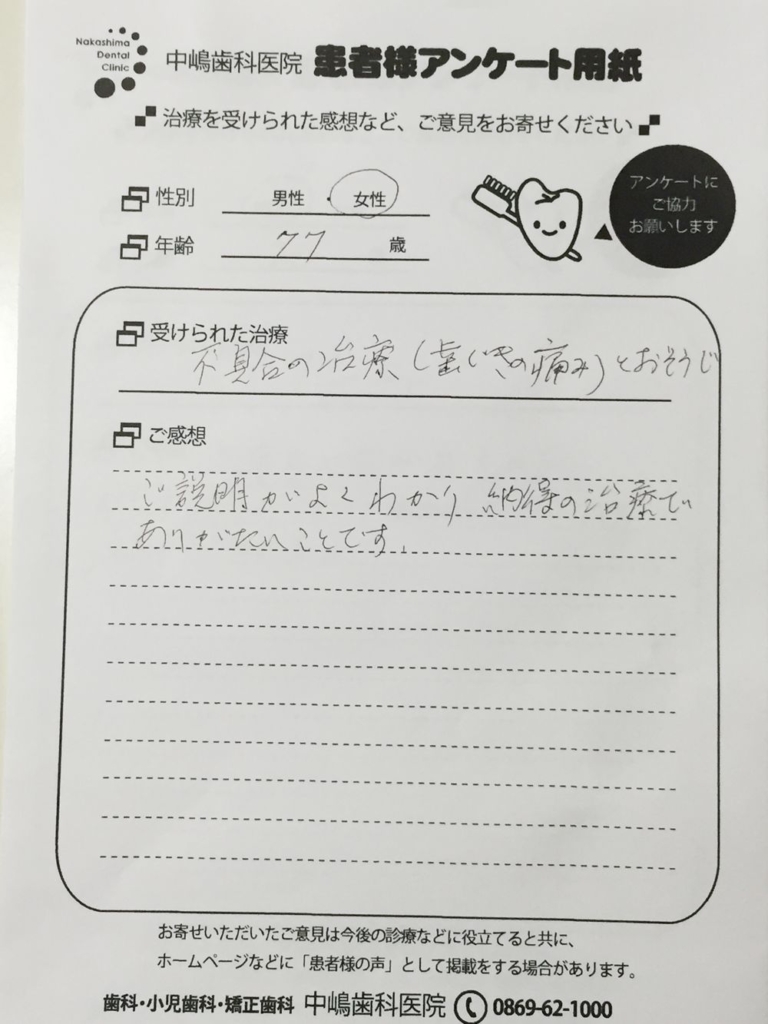 Nakashima
Dental
Clinic
中嶋歯科医院 患者様アンケート用紙
治療を受けられた感想など、ご意見をお寄せください
性別 男性・女性
年齢 77 歳
アンケートに
ご協力
お願いします
受けられた治療
不具合の治療(歯ぐきの痛み)とおそうじ
ご感想
ご説明がよくわかり納得の治療で
ありがたいことです。
お寄せいただいたご意見は今後の診療などに役立てると共に、
ホームページなどに「患者様の声」として掲載をする場合があります。
歯科・小児歯科・矯正歯科 中嶋歯科医院 0869-62-1000